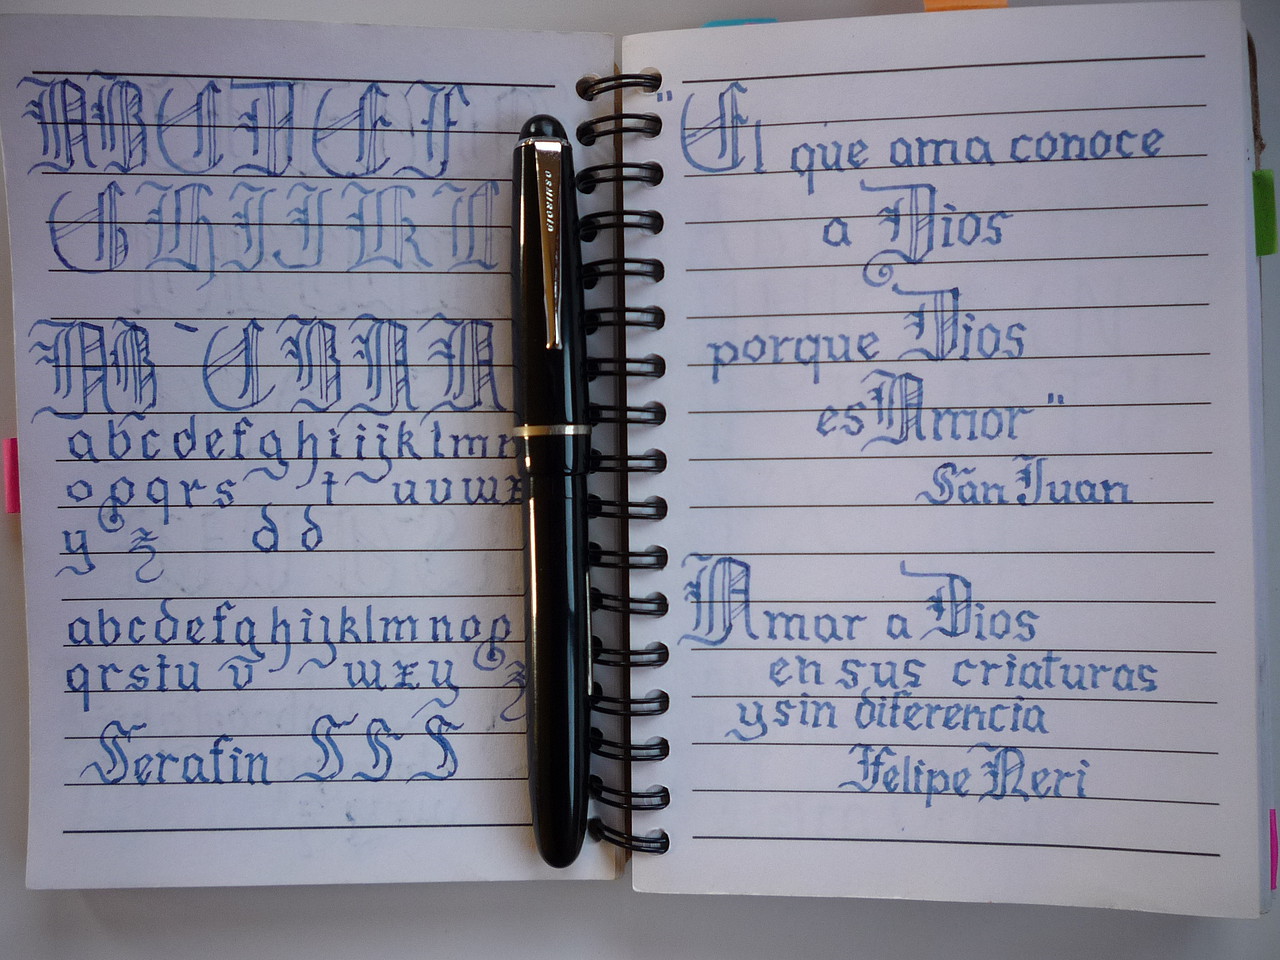 A B C D E F
G H I J K L
A B C B N A
a b c d e f g h i i j k l m n
o p q r s t u v w x
y z d d
a b c d e f g h i j k l m n o p
q r s t u v w x y z
Serafin S S S
OSMIROID
"El que ama conoce
a Dios
porque Dios
es Amor"
San Juan
Amar a Dios
en sus criaturas
y sin diferencia
Felipe Neri